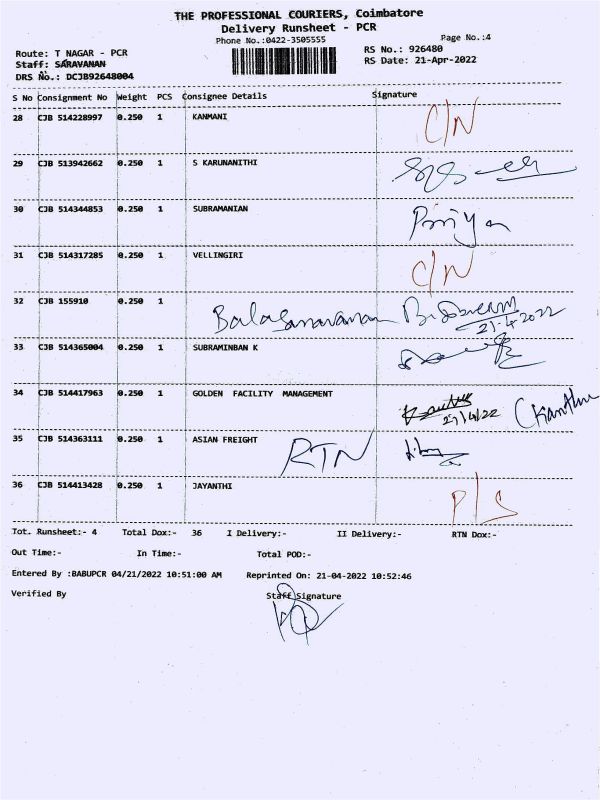 THE PROFESSIONAL COURIERS, Coimbatore
Delivery Runsheet - PCR
Phone No.:0422-3505555
Page No.:4
Route: T NAGAR - PCR
RS No.: 926480
Staff: SARAVANAN
RS Date: 21-Apr-2022
DRS No.: DCJB92648004
S No Consignment No Weight PCS Consignee Details Signature
28 CJB 514228997 0.250 1 KANMANI C/N
29 CJB 513942662 0.250 1 S KARUNANITHI
30 CJB 514344853 0.250 1 SUBRAMANIAN Priya
31 CJB 514317285 0.250 1 VELLINGIRI C/N
32 CJB 155910 0.250 1 21.4.2022
33 CJB 514365004 0.250 1 SUBRAMINBAN K
34 CJB 514417963 0.250 1 GOLDEN FACILITY MANAGEMENT
35 CJB 514363111 0.250 1 ASIAN FREIGHT RTN
36 CJB 514413428 0.250 1 JAYANTHI P/S
Tot. Runsheet:- 4 Total Dox:- 36 I Delivery:- II Delivery:- RTN Dox:-
Out Time:- In Time:- Total POD:-
Entered By :BABUPCR 04/21/2022 10:51:00 AM Reprinted On: 21-04-2022 10:52:46
Verified By Staff Signature